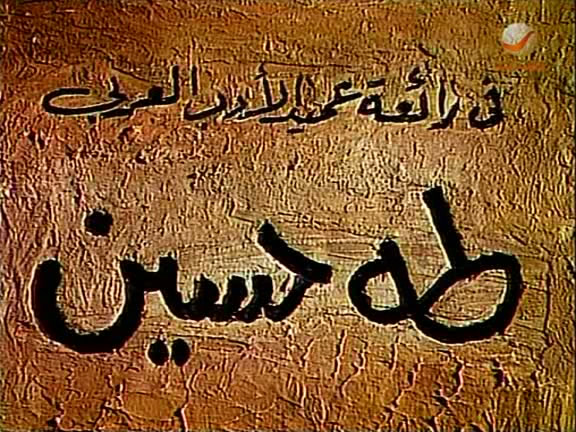 في رائعة عميد الأدب العربي
طه حسين